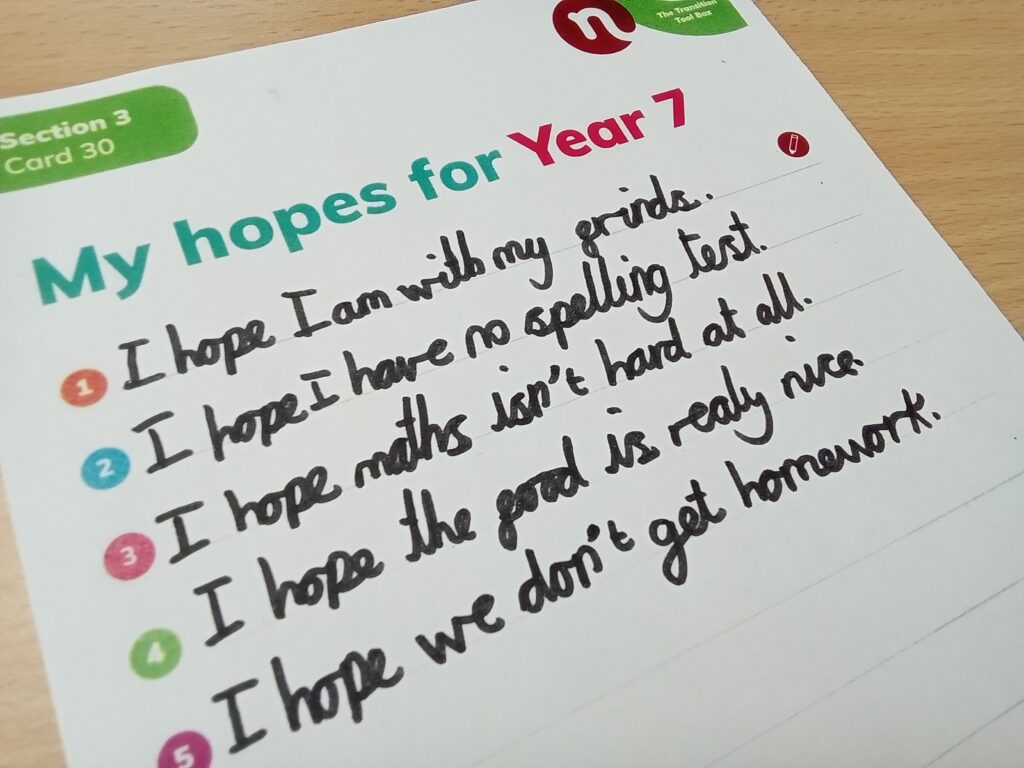 The Transition
Tool Box
n
Section 3
Card 30
My hopes for Year 7
1 I hope I am with my frinds.
2 I hope I have no spelling test.
3 I hope maths isn't hard at all.
4 I hope the food is realy nice.
5 I hope we don't get homework.